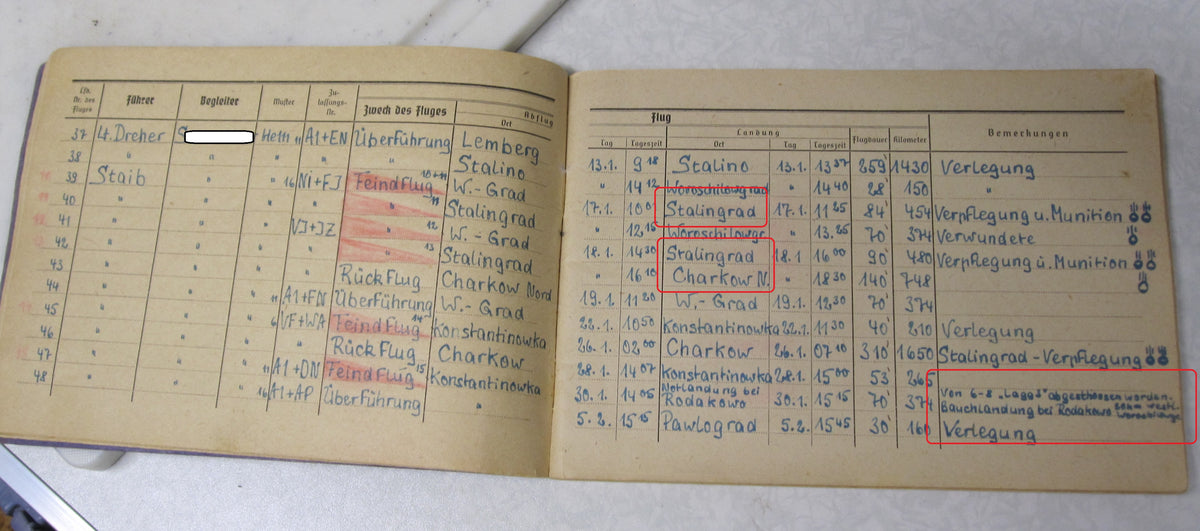 Lfd. Nr. des Fluges Führer Begleiter Muster Zulassungs-Nr. Zweck des Fluges Abflug
Ort
37 Lt. Dreher He111 A1+EN Überführung Lemberg
38 " " " " " Stalino
39 Staib " " 16 NI+FJ Feindflug W.-Grad
40 " " " " " 11 Stalingrad
41 " " " VJ+JZ " 12 W.-Grad
42 " " " " " 13 Stalingrad
43 " " " " Rückflug Charkow Nord
44 " " " 11 A1+FN Überführung W.-Grad
45 " " " 6 VF+WA Feindflug 14 Konstantinowka
46 " " " " Rückflug Charkow
47 " " " 11 A1+DN Feindflug 15 Konstantinowka
48 " " " 16 A1+AP Überführung "
Flug
Landung Flugdauer Kilometer Bemerkungen
Tag Tageszeit Ort Tag Tageszeit
13.1. 9 18 Stalino 13.1. 13 37 259' 1430 Verlegung
" 14 12 Woroschilowgrad " 14 40 28' 150 "
17.1. 10 01 Stalingrad 17.1. 11 25 84' 454 Verpflegung u. Munition
" 12 15 Woroschilowgr. " 13.25 70' 374 Verwundete
18.1. 14 30 Stalingrad 18.1 16 00 90' 480 Verpflegung u. Munition
" 16 10 Charkow N. " 18 30 140' 748
19.1. 11 20 W.-Grad 19.1. 12 30 70' 374
22.1. 10 50 Konstantinowka 22.1. 11 30 40' 210 Verlegung
26.1. 02 00 Charkow 26.1. 07 10 310' 1650 Stalingrad-Verpflegung
28.1. 14 07 Konstantinowka 28.1. 15 00 53' 265
30.1. 14 05 Notlandung bei Rodakowo 30.1. 15 15 70' 374 Von 6-8 "Lagg3" abgeschossen worden.
Bauchlandung bei Rodakowo 50km westl.
5.2. 15 15 Pawlograd 5.2. 15 45 30' 160 Verlegung